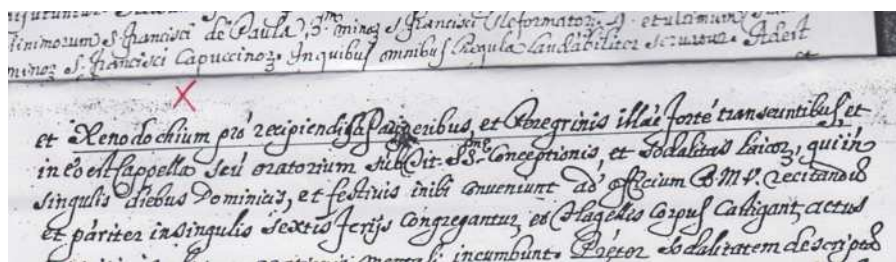 Minimorum S. Francisci de Paula, 3.m minoȝ S. Francisci Reformatoȝ. 4. et ulamum
minoȝ S. Francisci Capuccinoȝ. In quibus omnibus Regula laudabiliter servatur. Adest
et
et Xenodochium pró recipiendis Pauperibus, et Peregrinis illàc forté transeuntibus, et
in eo est Cappella seú oratorium sub tit. SS.me Conceptionis, et sodalitas Laicoȝ, qui in
singulis diebus Dominicis, et festivis inibi conveniunt ad officium B.M.V. recitandū
et páriter in singulis sextis ferijs Congregantur et Flagellis Corpus Castigant, actus
mentali incumbunt. Prèter sodalitatem descriptā